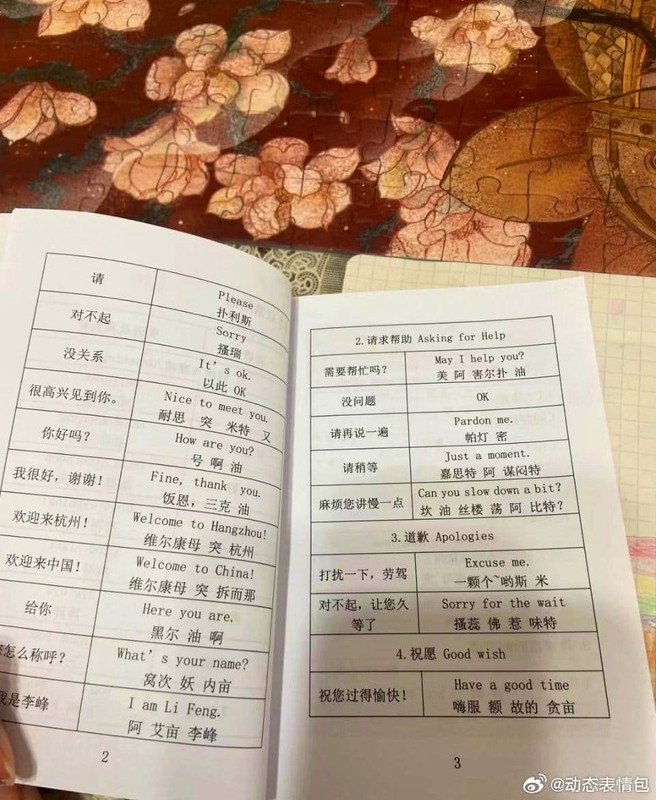 请
Please
扑利斯
对不起
Sorry
搔瑞
没关系
It's ok.
以此 OK
很高兴见到你。
Nice to meet you.
耐思 突 米特 又
你好吗?
How are you?
号 啊 油
我很好,谢谢!
Fine, thank you.
饭恩,三克 油
欢迎来杭州!
Welcome to Hangzhou!
维尔康母 突 杭州
欢迎来中国!
Welcome to China!
维尔康母 突 拆而那
给你
Here you are.
黑尔 油 啊
怎么称呼?
What's your name?
窝次 妖 内亩
我是李峰
I am Li Feng.
阿 艾亩 李峰
2
2.请求帮助 Asking for Help
需要帮忙吗?
May I help you?
美 阿 害尔扑 油
没问题
OK
请再说一遍
Pardon me.
帕灯 密
请稍等
Just a moment.
嘉思特 阿 谋闷特
麻烦您讲慢一点
Can you slow down a bit?
坎 油 丝楼 荡 阿 比特?
3.道歉 Apologies
打扰一下,劳驾
Excuse me.
一颗个~哟斯 米
对不起,让您久等了
Sorry for the wait
搔蕊 佛 惹 味特
4.祝愿 Good wish
祝您过得愉快!
Have a good time
嗨服 额 故的 贪亩
3
@动态表情包